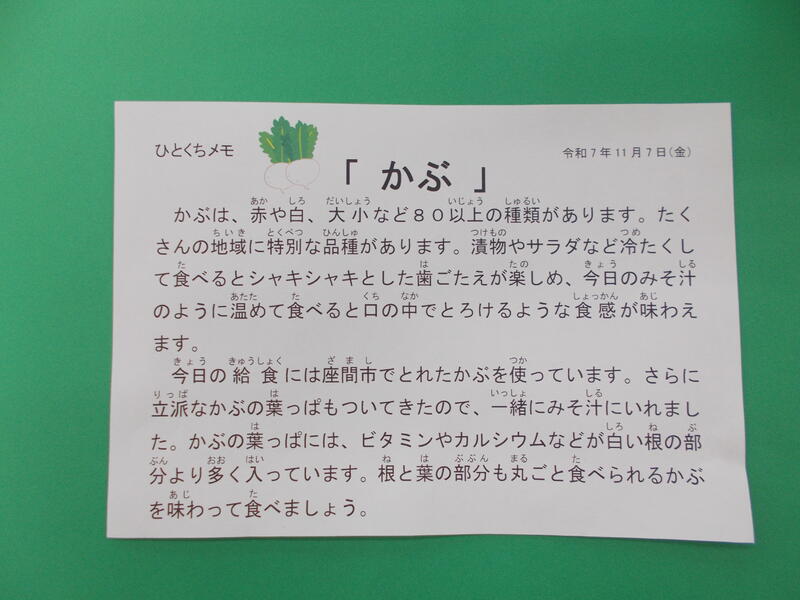 ひとくちメモ
令和7年11月7日(金)
「 かぶ 」
かぶは、赤や白、大小など80以上の種類があります。たく
さんの地域に特別な品種があります。漬物やサラダなど冷たくし
て食べるとシャキシャキとした歯ごたえが楽しめ、今日のみそ汁
のように温めて食べると口の中でとろけるような食感が味わえ
ます。
今日の給食には座間市でとれたかぶを使っています。さらに
立派なかぶの葉っぱもついてきたので、一緒にみそ汁にいれまし
た。かぶの葉っぱには、ビタミンやカルシウムなどが白い根の部
分より多く入っています。根と葉の部分も丸ごと食べられるかぶ
を味わって食べましょう。